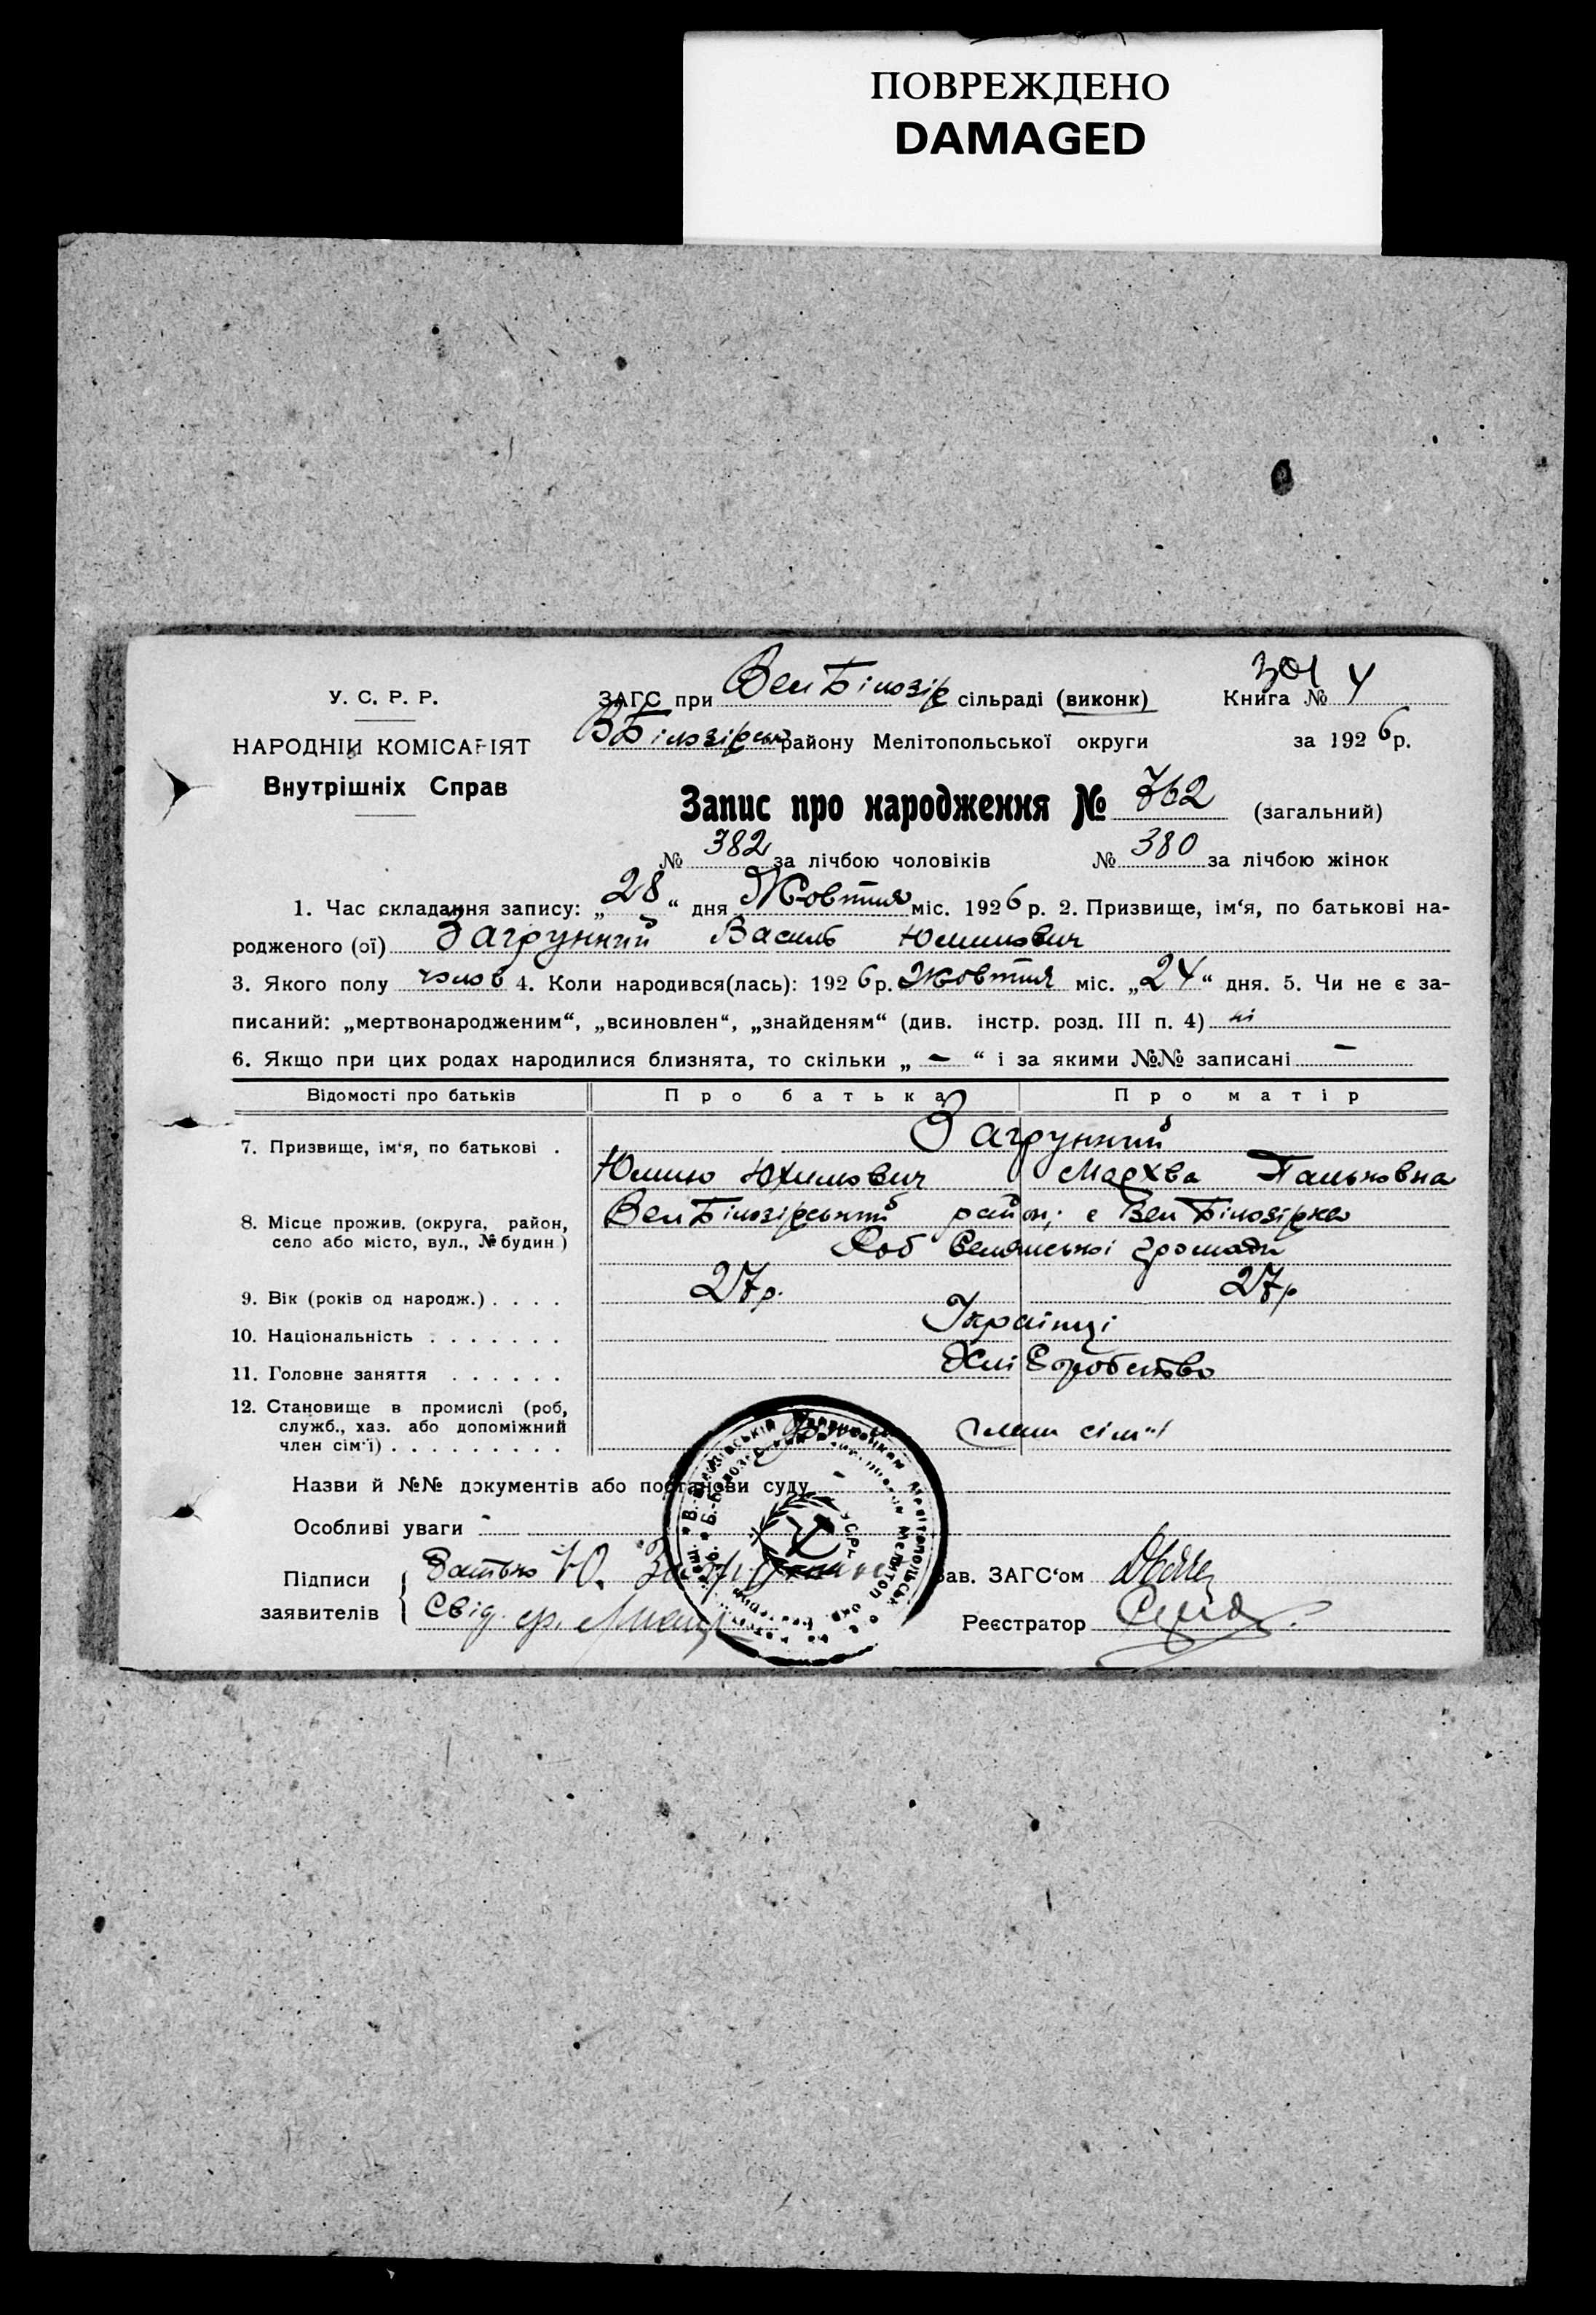 ПОВРЕЖДЕНО
DAMAGED
301
У. С. Р. Р.
НАРОДНІЙ КОМІСАРІЯТ
Внутрішніх Справ
ЗАГС при Вел Білозір сільраді (виконк) Книга № 4
ВБілозірськ району Мелітопольської округи за 1926 р.
Запис про народження № 762 (загальний)
№ 382 за лічбою чоловіків № 380 за лічбою жінок
1. Час складання запису: „28“ дня Жовтня міс. 1926 р. 2. Призвище, ім‘я, по батькові на-
родженого (ої) Загрунний Василь Юхимович
3. Якого полу чолов 4. Коли народився(лась): 1926 р. Жовтня міс. „24“ дня. 5. Чи не є за-
писаний: „мертвонародженим“, „всиновлен“, „знайденям“ (див. інстр. розд. III п. 4) ні
6. Якщо при цих родах народилися близнята, то скільки „ - “ і за якими №№ записані -
Відомості про батьків Про батька Про матір
7. Призвище, ім‘я, по батькові . Загрунний
Юхимович Пальковна
8. Місце прожив. (округа, район,
село або місто, вул., № будин)
ВелБілозірський район; с Вел Білозірка
громади
9. Вік (років од народж.) . . . . 27р. 27р
10. Національність . . . . . . . Українці
11. Головне заняття . . . . . . Хліборобство
12. Становище в промислі (роб,
служб., хаз. або допоміжний
член сім‘ї) . . . . . . . . . член сім"ї
Назви й №№ документів або постанови суду -
Особливі уваги -
Підписи
заявителів
Батько Ю.
Свід. гр.
Зав. ЗАГС‘ом
Реєстратор
УСРР